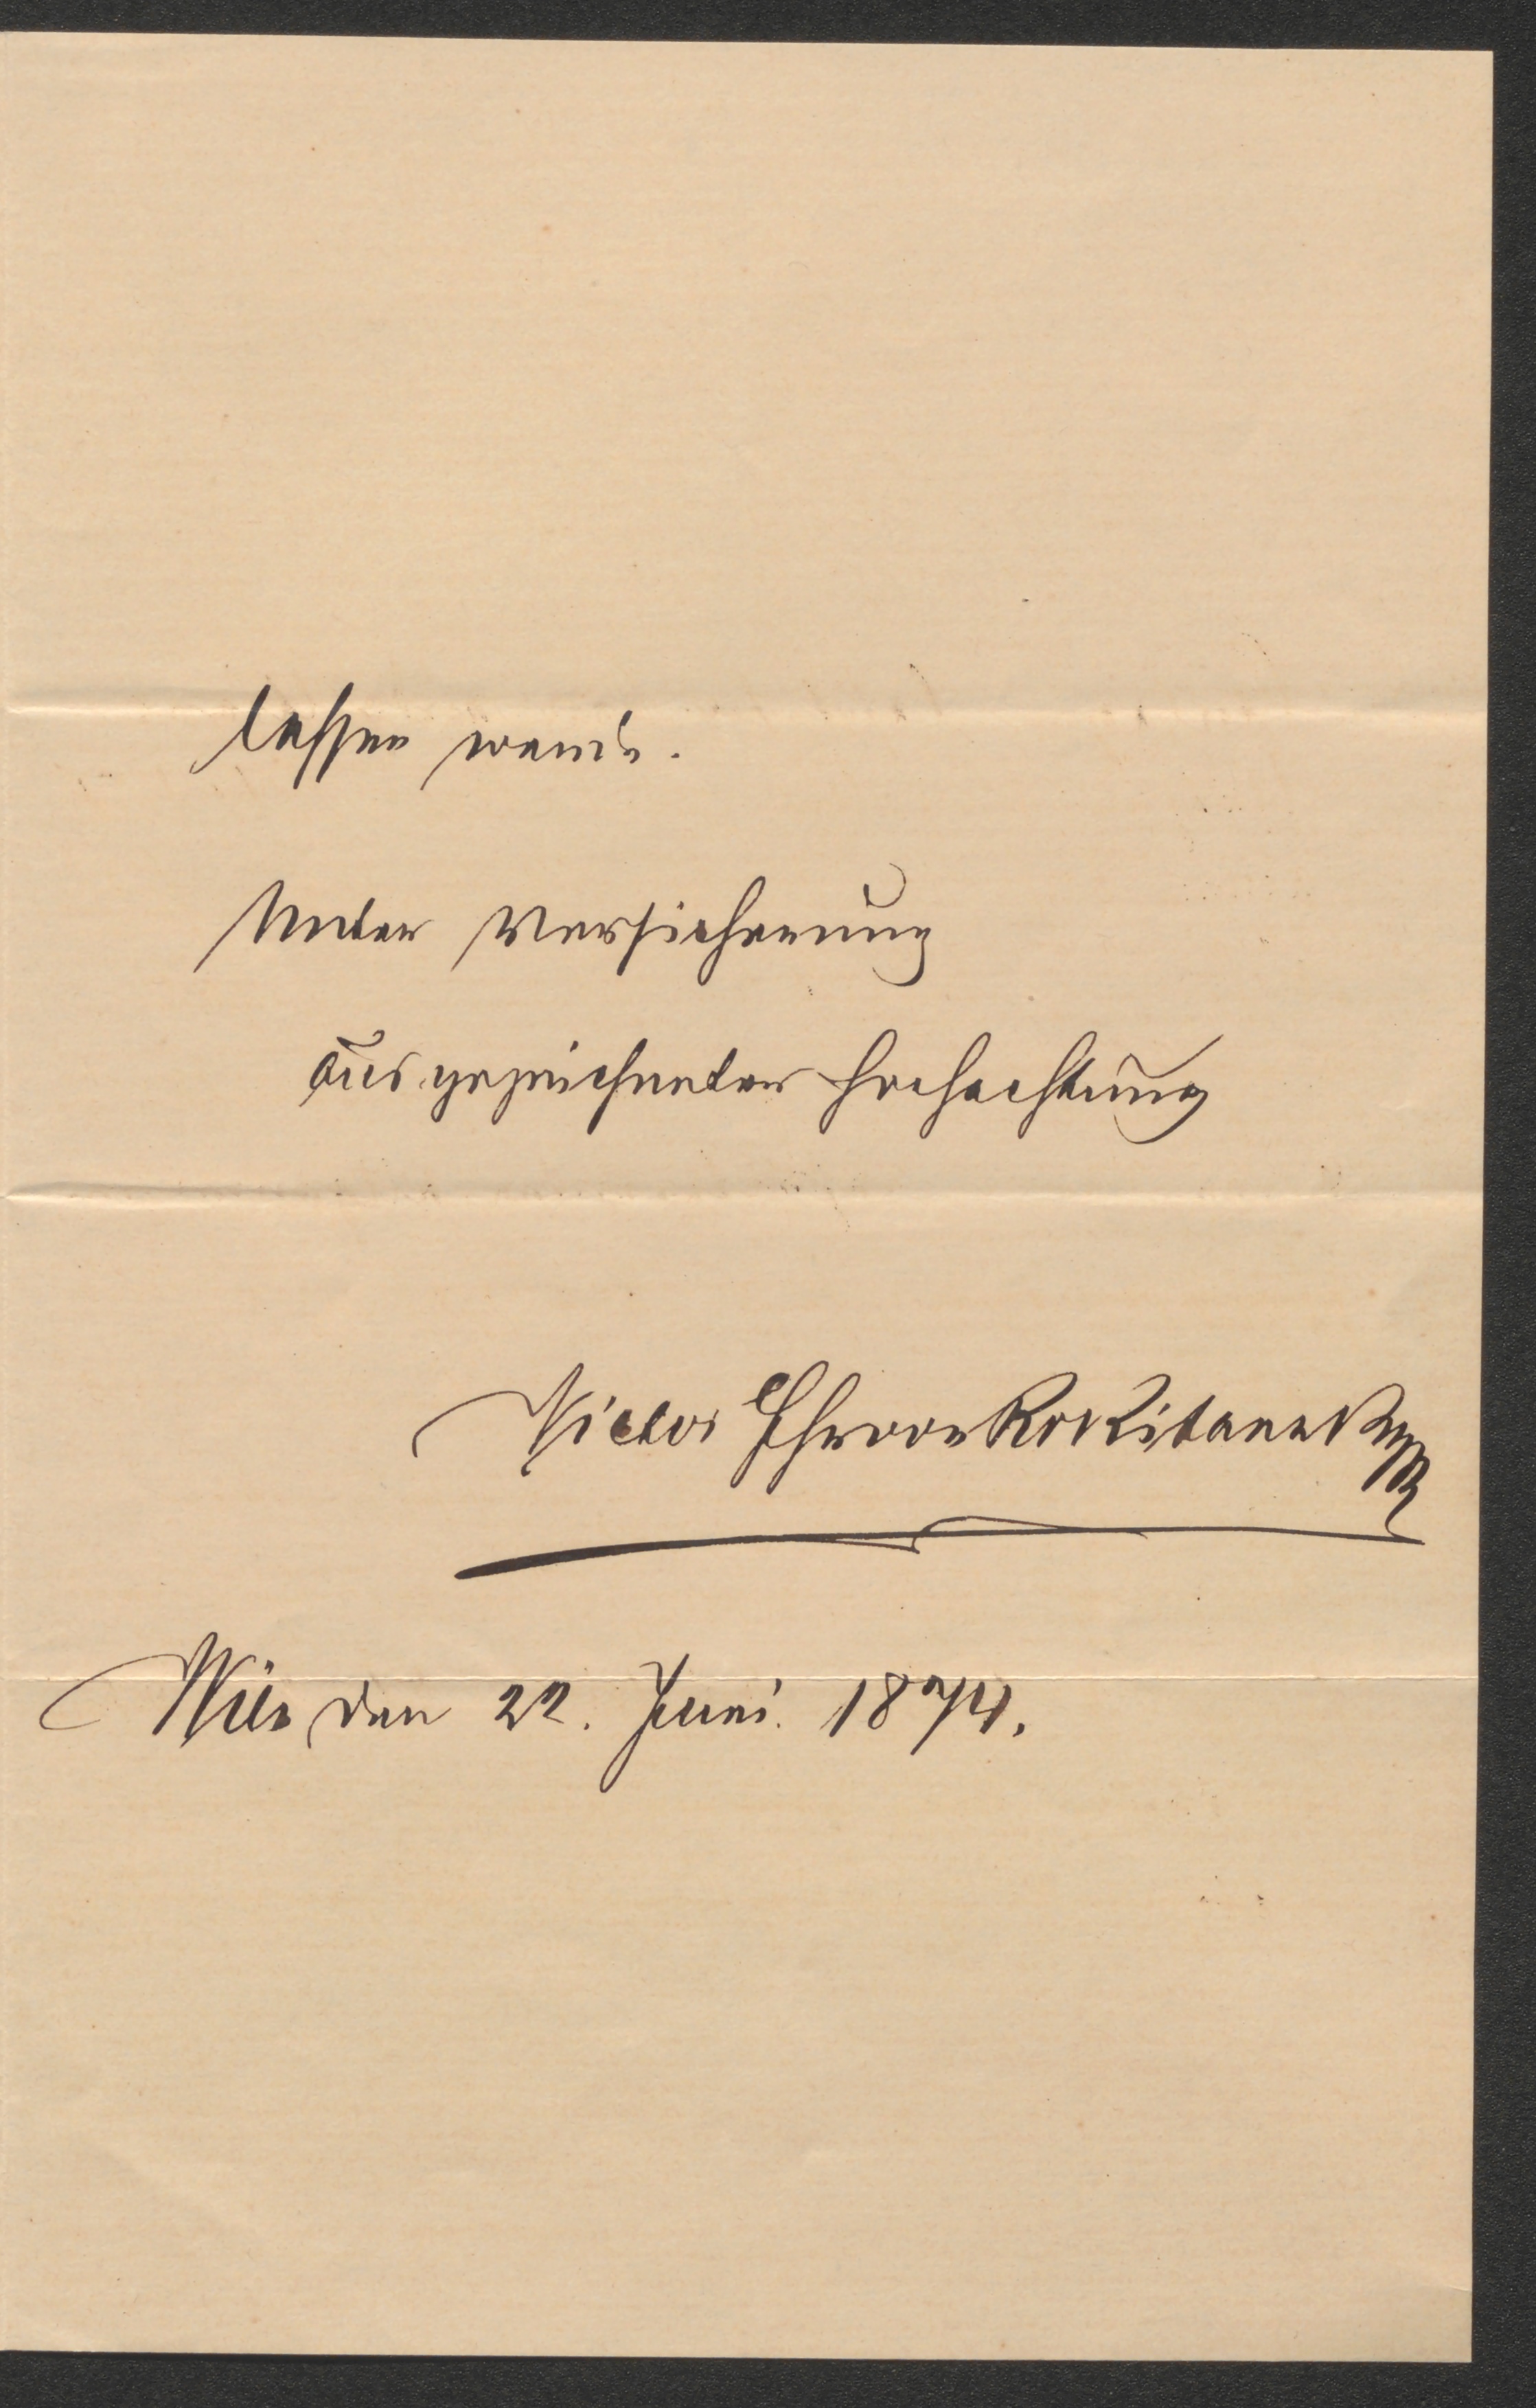 lassen werde.
Unter Versicherung
ausgezeichneter Hochachtung
Victor Rokitansky
Wien den 22. Juni. 1874.